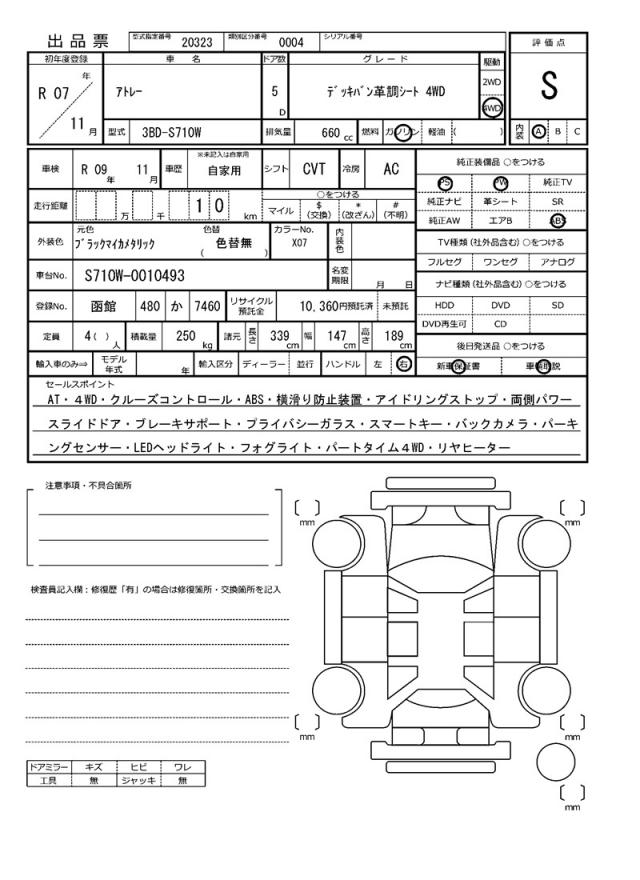 出品票 型式指定番号 20323 類別区分番号 0004 シリアル番号
初年度登録 車名 ドア数 グレード 駆動 評価点
R 07 年 11 月 アトレー 5 D デッキバン革調シート 4WD 2WD 4WD S
型式 3BD-S710W 排気量 660 cc 燃料 ガソリン 軽油 ( ) 内装 A B C
車検 R 09 年 11 月 車歴 ※未記入は自家用 自家用 シフト CVT 冷房 AC 純正装備品 ○をつける
PS PW 純正TV
走行距離 万 千 1 0 km ○をつける
マイル $ (交換) * (改ざん) # (不明)
純正ナビ 革シート SR
純正AW エアB ABS
外装色 元色 ブラックマイカメタリック 色替 ( 色替無 ) カラーNo. X07 内装色
TV種類 (社外品含む) ○をつける
フルセグ ワンセグ アナログ
車台No. S710W-0010493 名変期限 月 日
ナビ種類 (社外品含む) ○をつける
登録No. 函館 480 か 7460 リサイクル預託金 10,360円預託済 未預託
HDD DVD SD
DVD再生可 CD
定員 4 ( ) 人 積載量 250 kg 諸元 長さ 339 cm 幅 147 cm 高さ 189 cm
後日発送品 ○をつける
輸入車のみ⇒ モデル年式 年 輸入区分 ディーラー 並行 ハンドル 左 右 新車保証書 車輌取説
セールスポイント
AT・4WD・クルーズコントロール・ABS・横滑り防止装置・アイドリングストップ・両側パワー
スライドドア・ブレーキサポート・プライバシーガラス・スマートキー・バックカメラ・パーキ
ングセンサー・LEDヘッドライト・フォグライト・パートタイム4WD・リヤヒーター
注意事項・不具合箇所
検査員記入欄：修復歴「有」の場合は修復箇所・交換箇所を記入
mm
mm
mm
mm
mm
ドアミラー キズ ヒビ ワレ
工具 無 ジャッキ 無